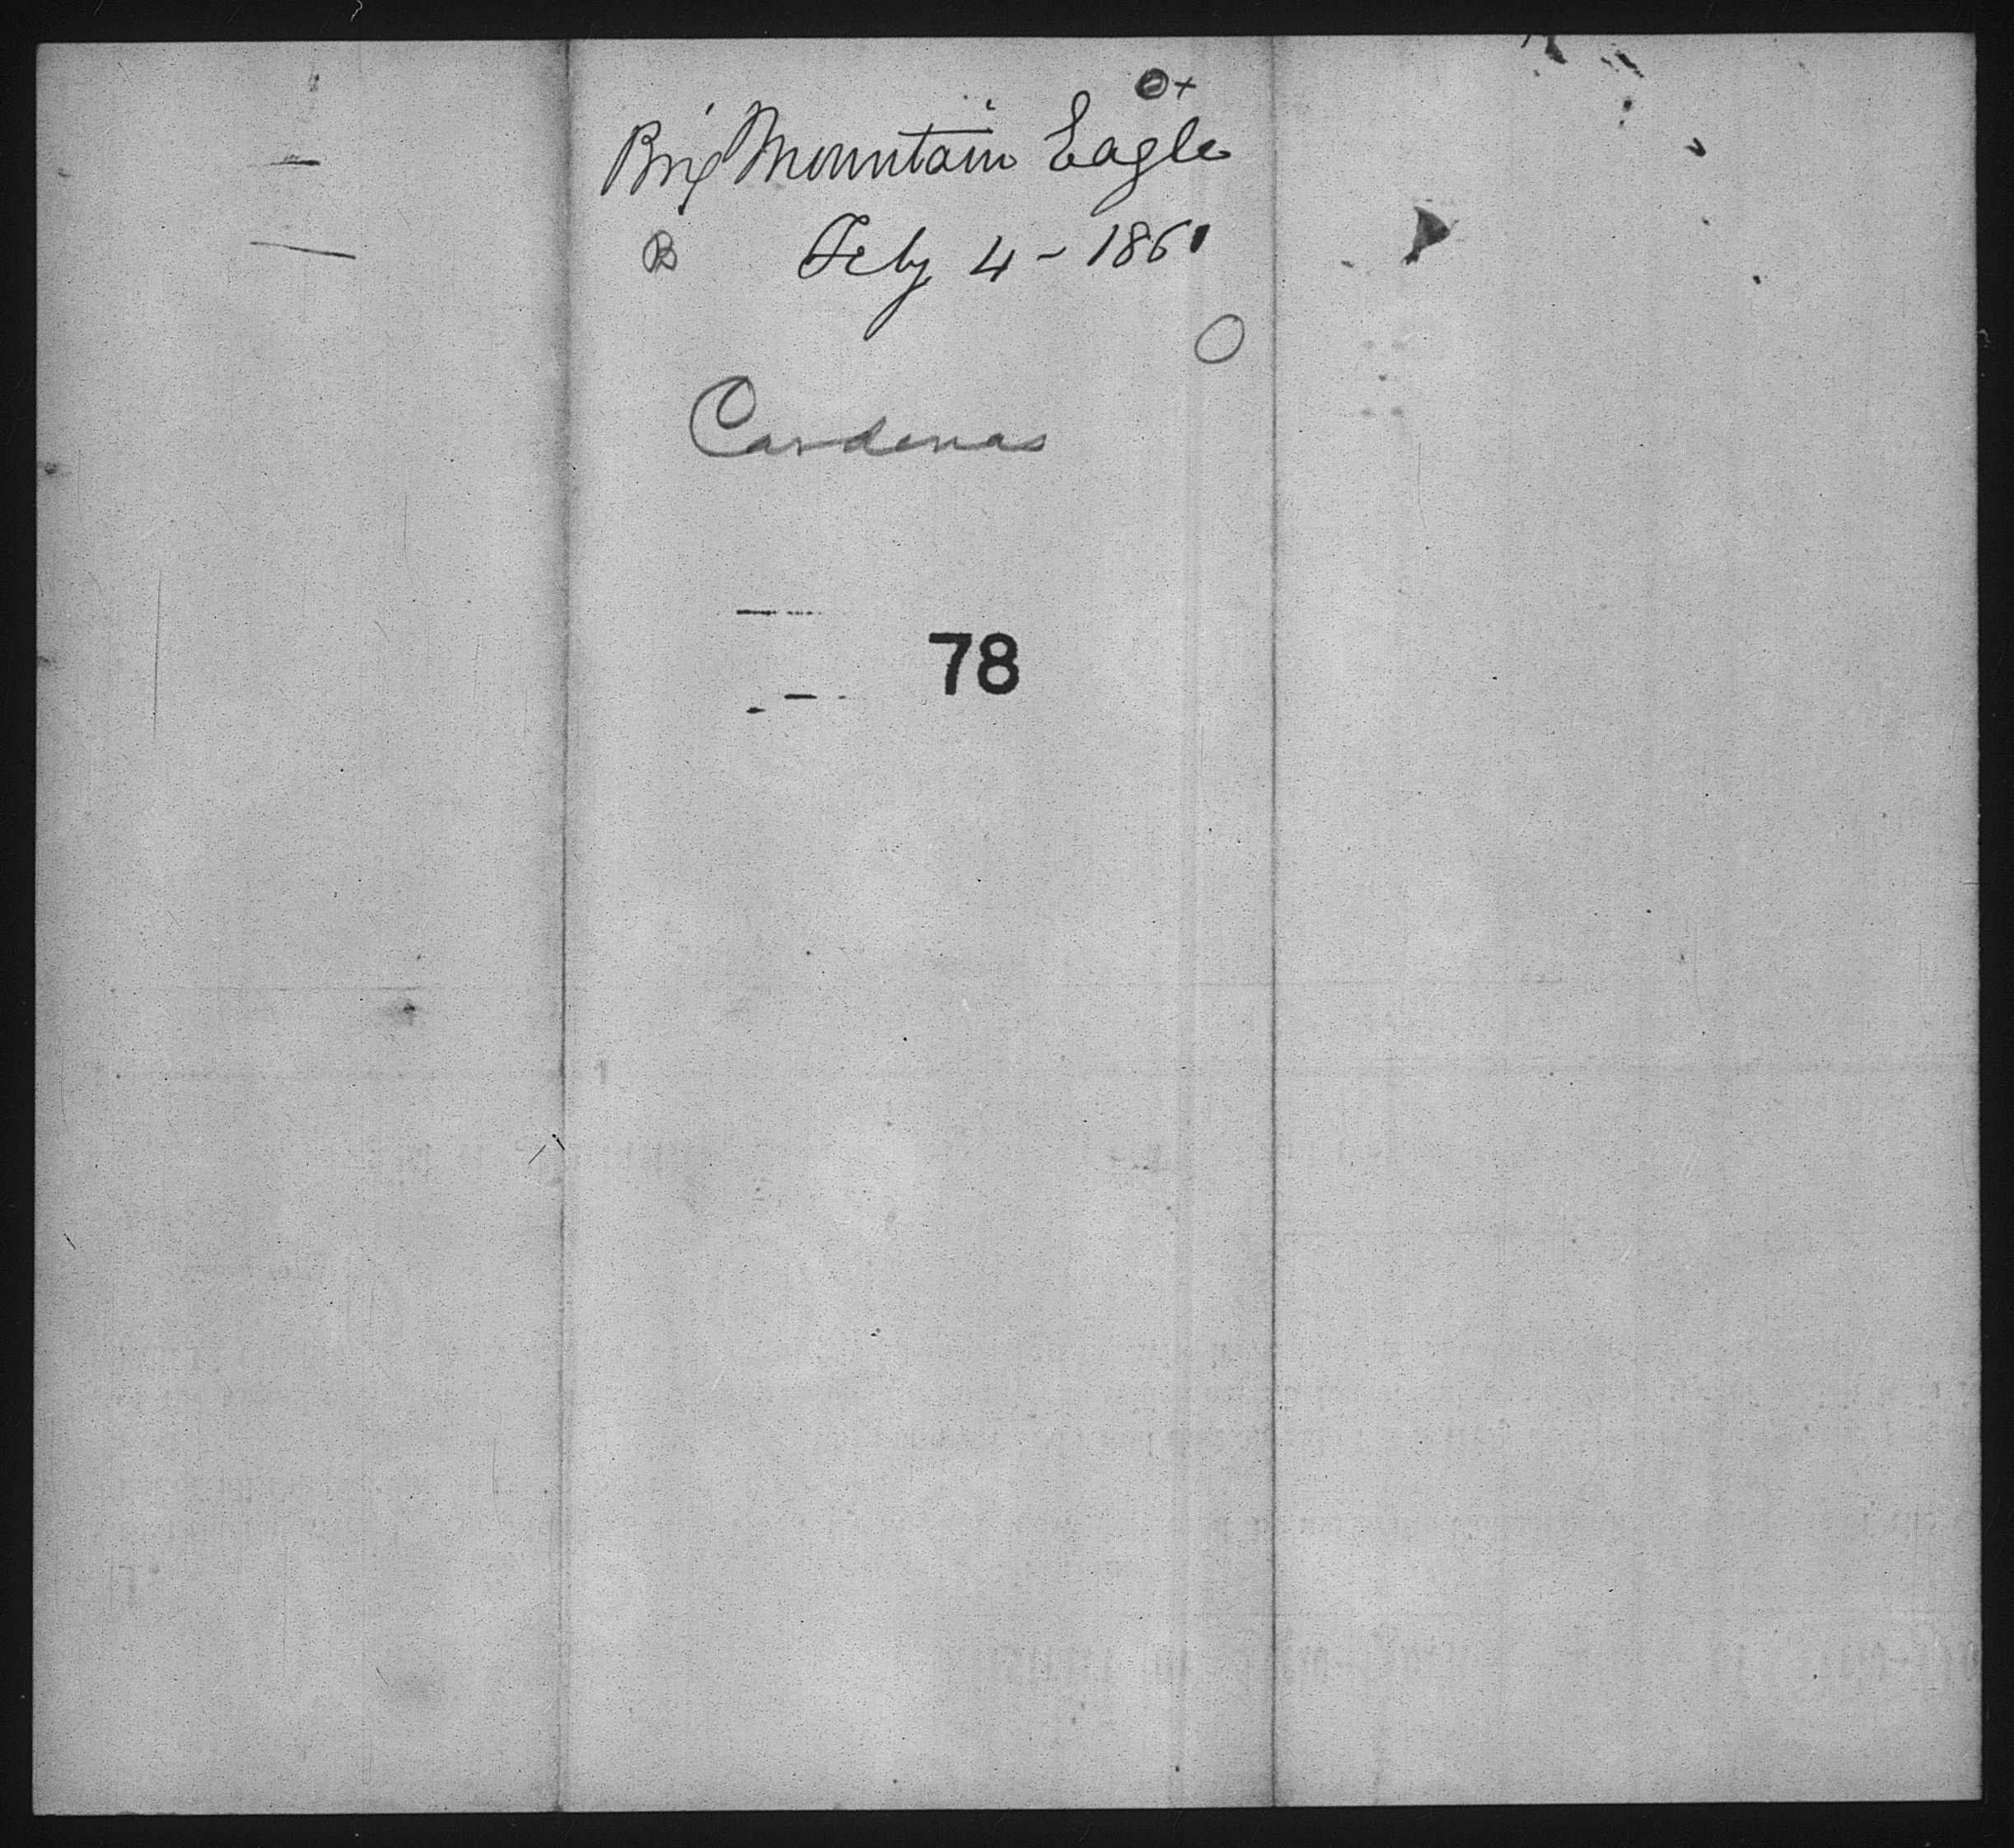 Brig Mountain Eagle
B Feby 4 - 1861
Cardenas
78